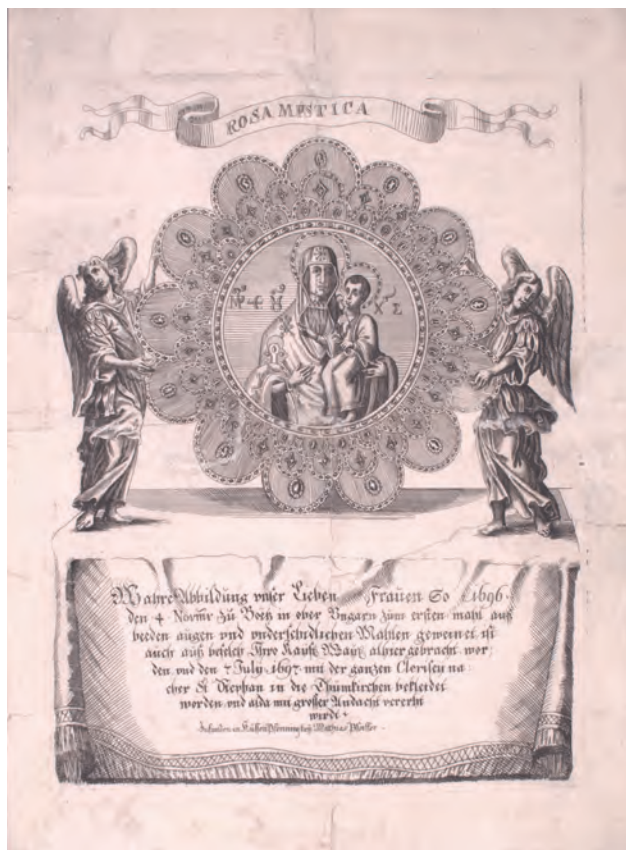 ROSA MYSTICA
X Σ
Wahre Abbildung vnser Lieben Frauen So 1696.
den 4 Novmr zu Boetz in ober Vngarn zum ersten mahl auß
beeden augen vnd vnderschidlichen Mahlen geweinet ist
auch auß befelch Ihro Kayß Mayt alhier gebracht wor
den vnd den 7 July 1697 mit der ganzen Clerisey na
cher St Stephan in die Thumkirchen bekleidet
worden vnd alda mit grosser Andacht verehrt
wirdt
Mathias Pfeiffer